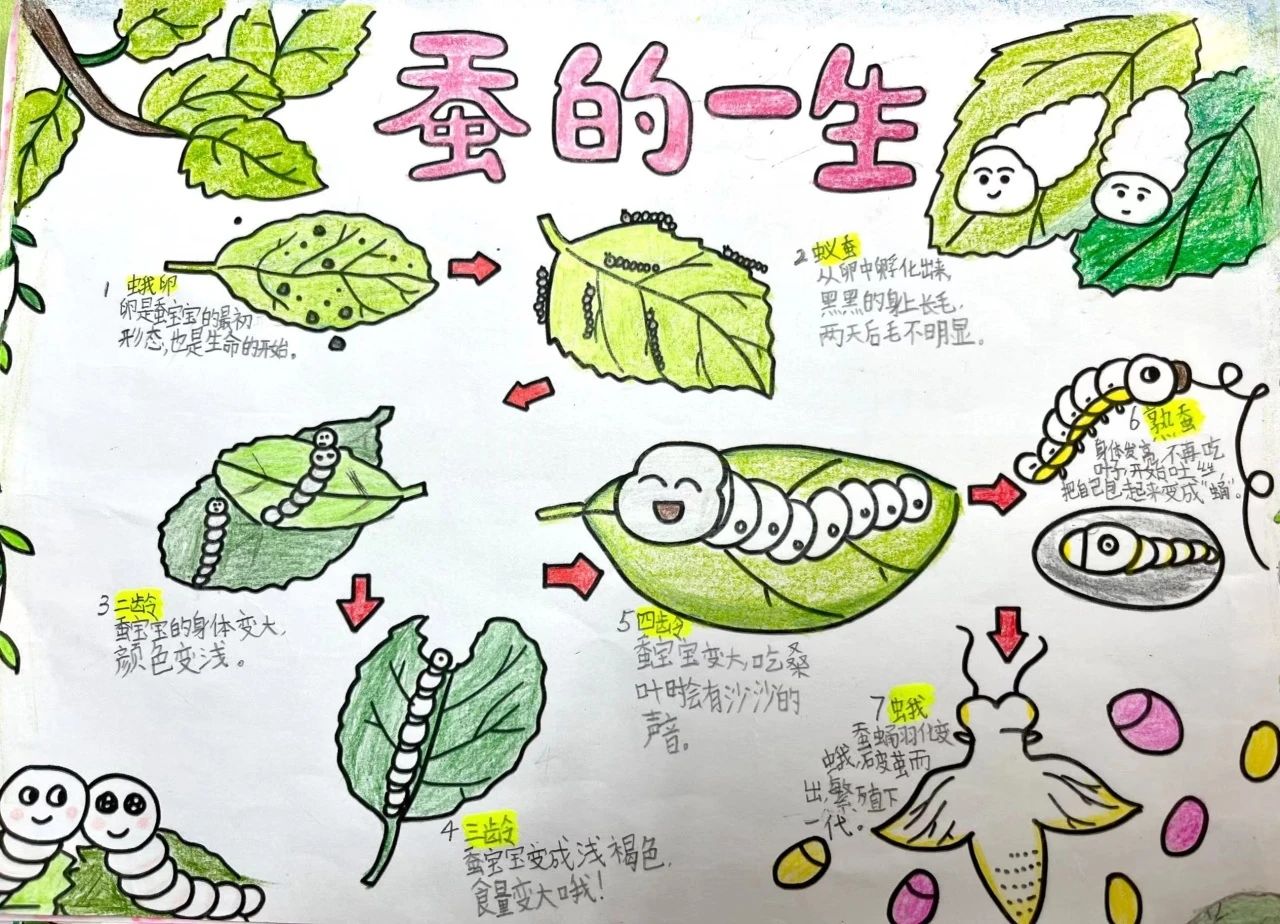 蚕的一生
1 蛾卵
卵是蚕宝宝的最初
形态,也是生命的开始。
2 蚁蚕
从卵中孵化出来,
黑黑的身上长毛,
两天后毛不明显。
3 二龄
蚕宝宝的身体变大,
颜色变浅。
4 三龄
蚕宝宝变成浅褐色,
食量变大哦!
5 四龄
蚕宝宝变大,吃桑
叶时会有沙沙的
声音。
6 熟蚕
身体发亮,不再吃
叶子,开始吐丝,
把自己包起来变成“蛹”。
7 蛾
蚕蛹羽化变
蛾,破茧而
出,繁殖下
一代。